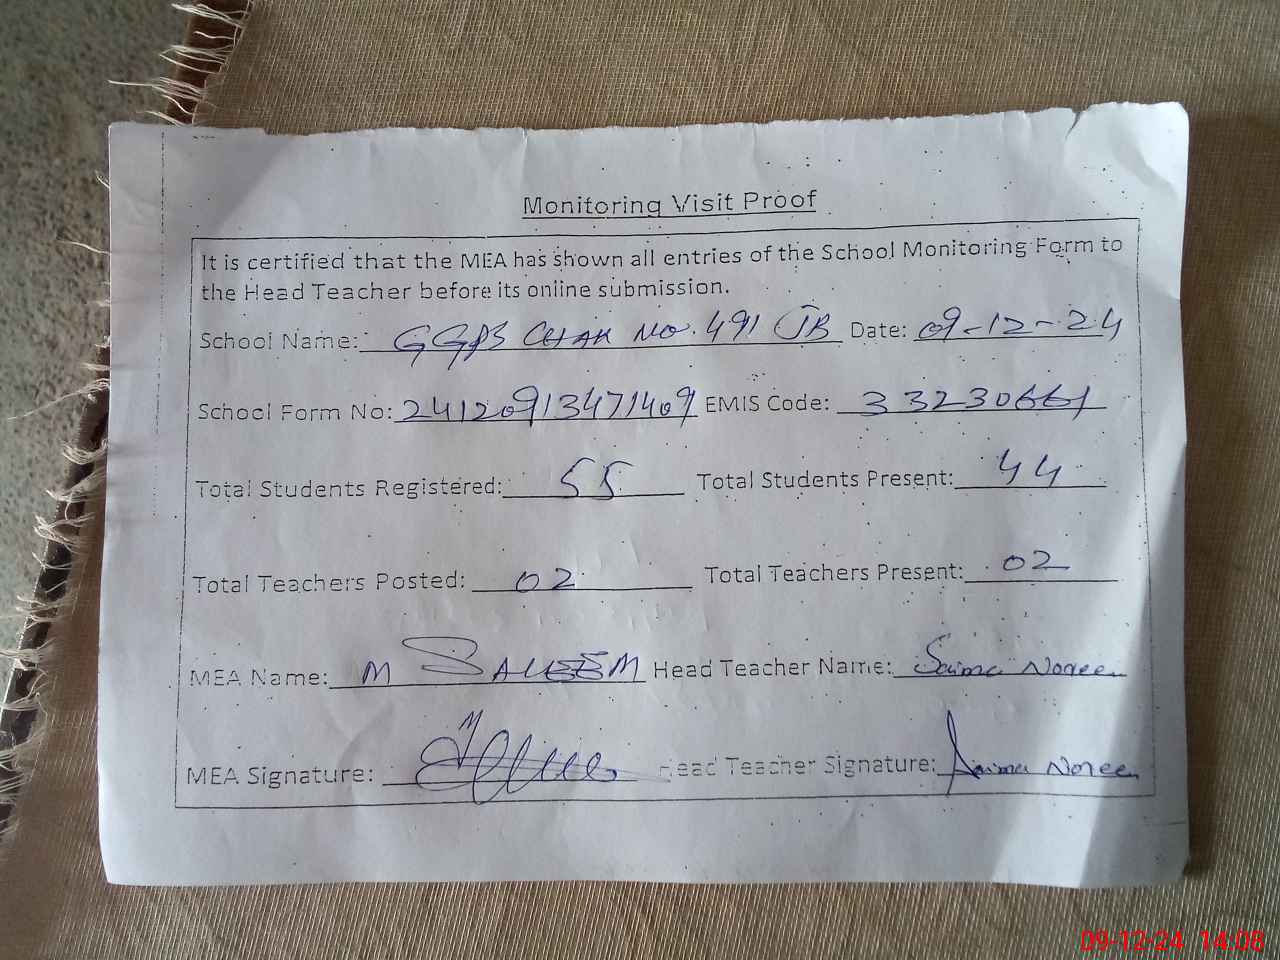 Monitoring Visit Proof
It is certified that the MEA has shown all entries of the School Monitoring Form to
the Head Teacher before its online submission.
School Name: GGPS CHAK No. 491 JB Date: 09-12-24
School Form No: 24120913471409 EMIS Code: 33230661
Total Students Registered: 55 Total Students Present: 44
Total Teachers Posted: 02 Total Teachers Present: 02
MEA Name: M SALEEM Head Teacher Name: Saima Noreen
MEA Signature: Head Teacher Signature: Saima Noreen
09-12-24 14:08